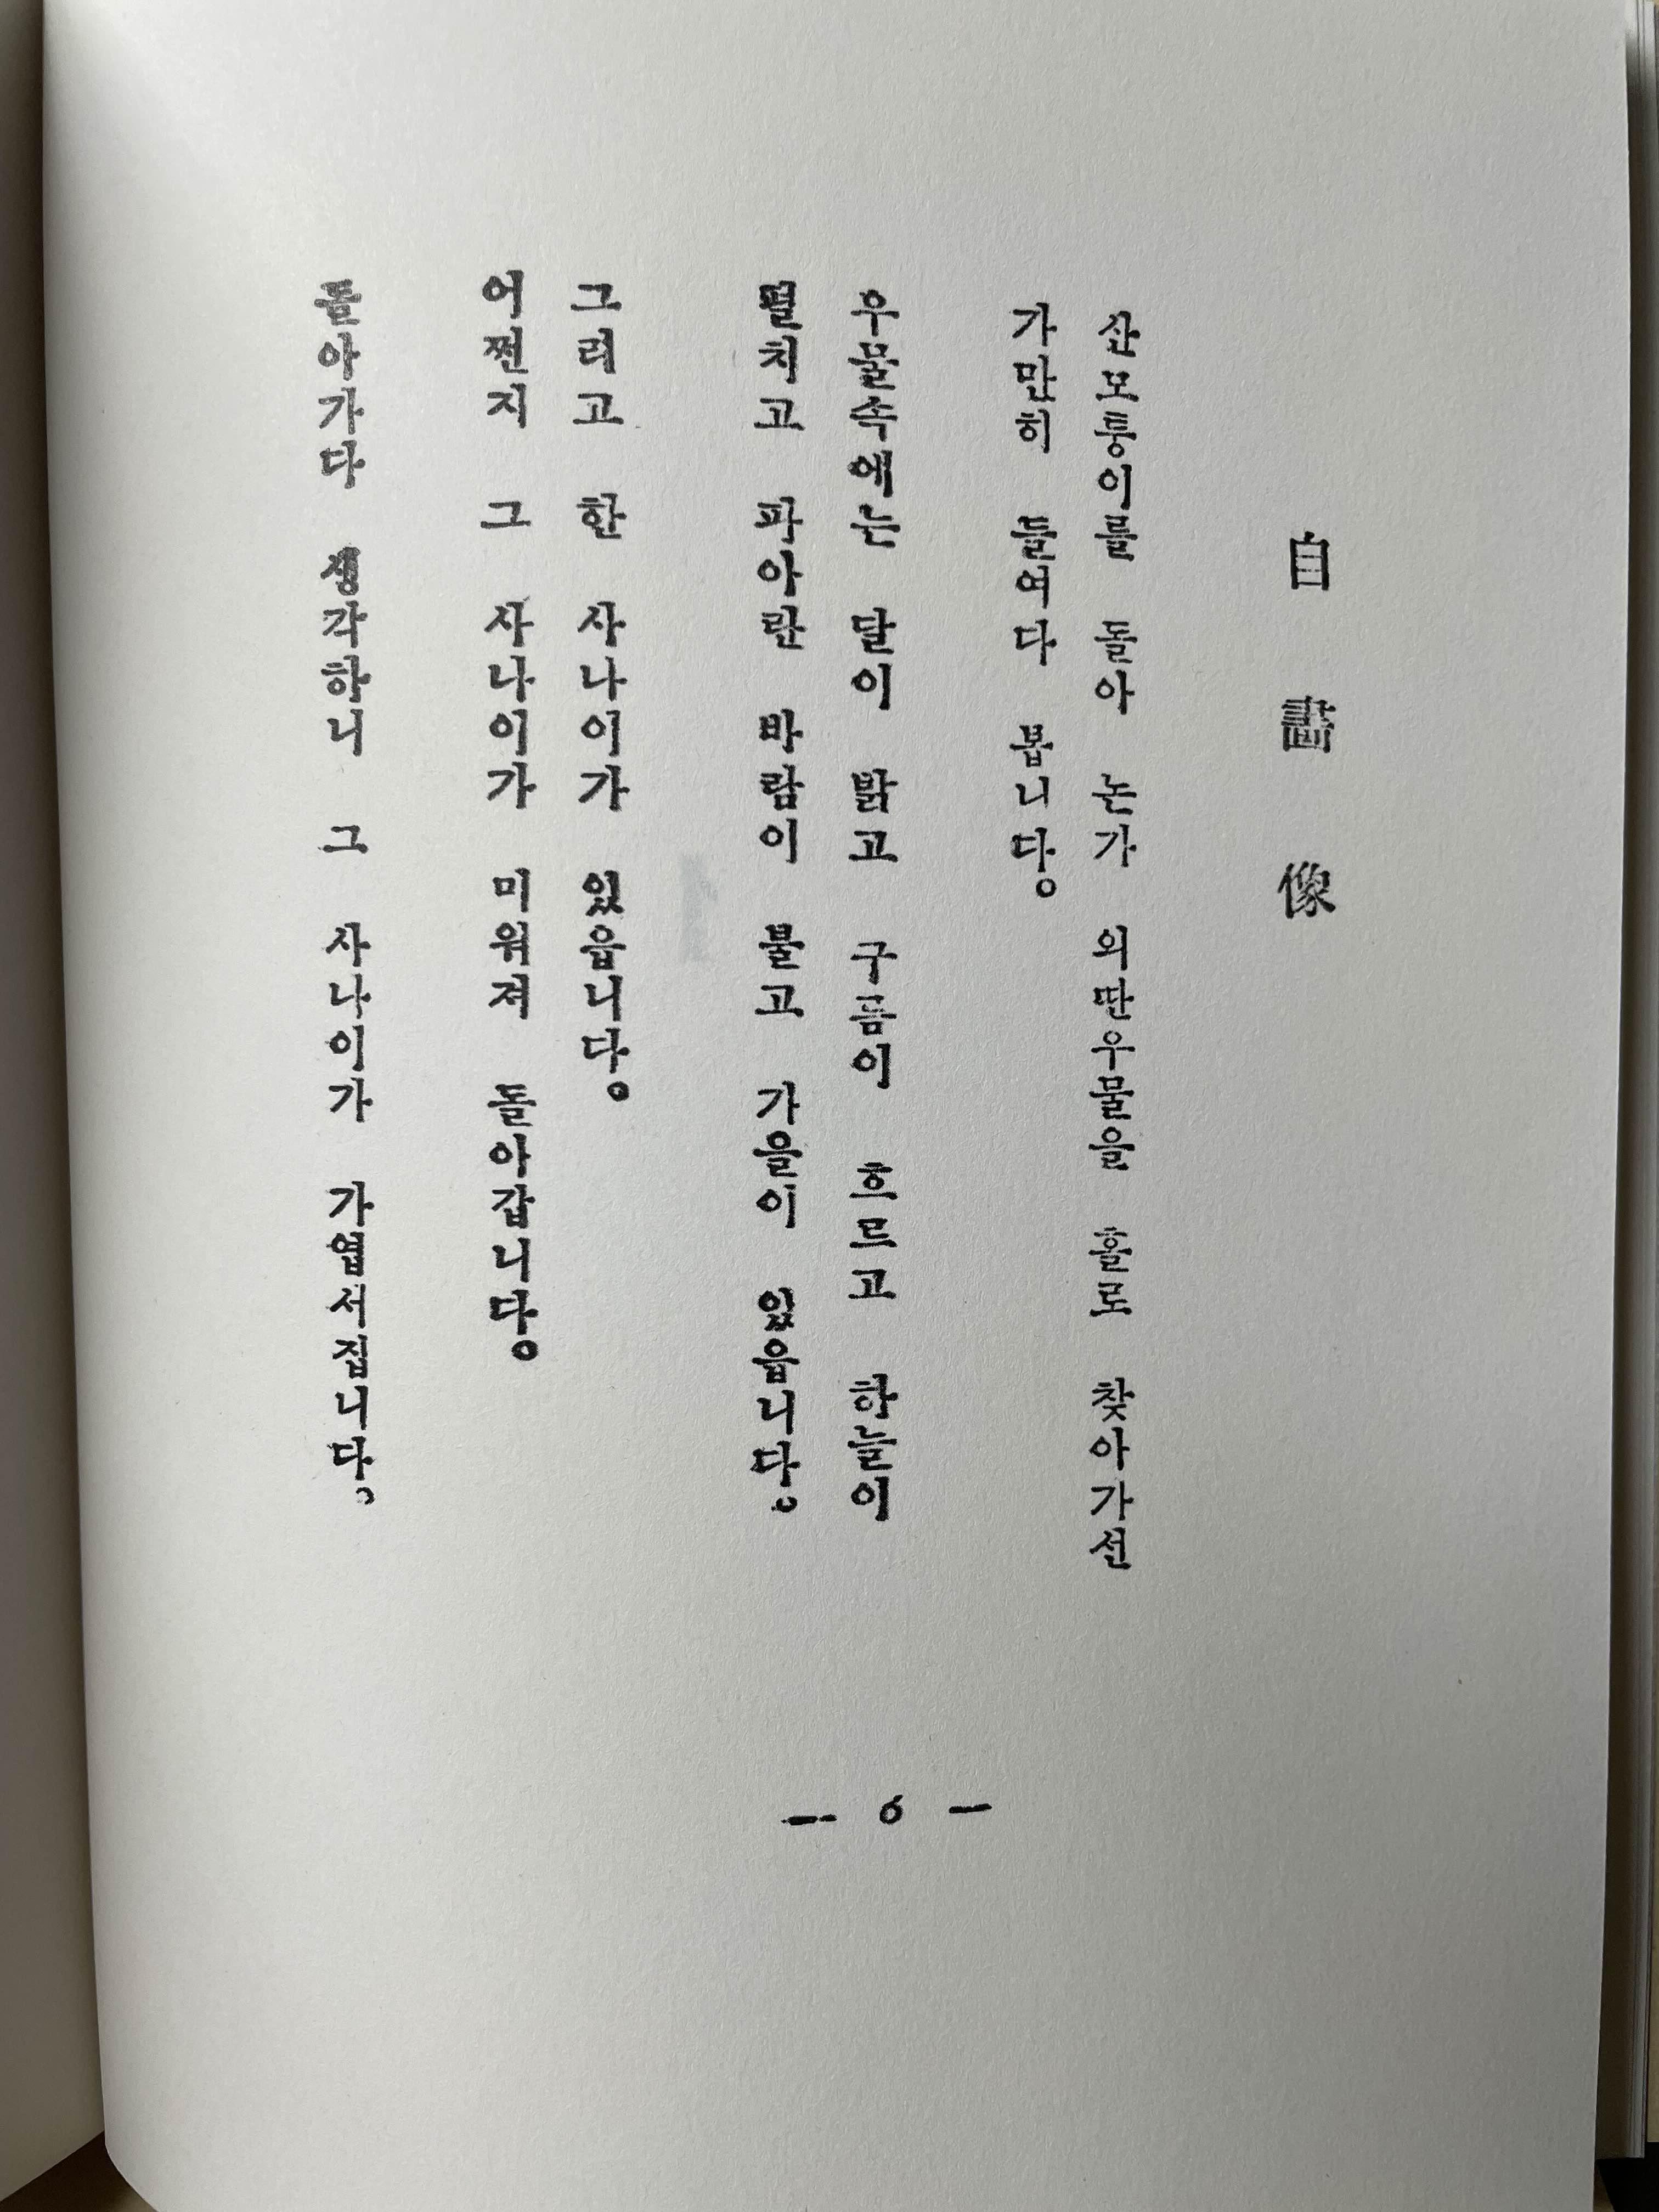 自畵像
산모퉁이를 돌아 논가 외딴우물을 홀로 찾아가선
가만히 들여다 봅니다。
우물속에는 달이 밝고 구름이 흐르고 하늘이
펼치고 파아란 바람이 불고 가을이 있읍니다。
그리고 한 사나이가 있읍니다。
어쩐지 그 사나이가 미워져 돌아갑니다。
돌아가다 생각하니 그 사나이가 가엽서집니다。
— 6 —